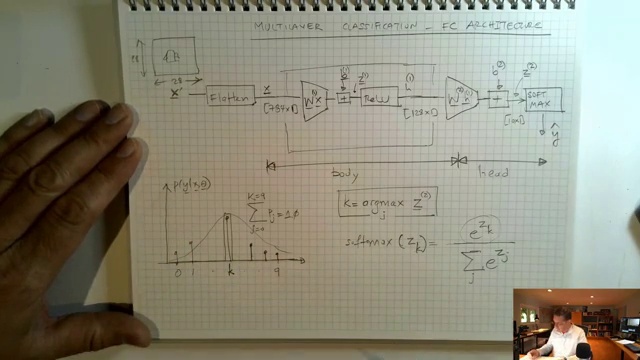 MULTILAYER CLASSIFICATION - FC ARCHITECTURE
28
28
x
Flatten
x
[784x1]
W⁽¹⁾x
b⁽¹⁾
+
z⁽¹⁾
ReLU
h⁽¹⁾
[128x1]
W⁽²⁾h⁽¹⁾
b⁽²⁾
+
z⁽²⁾
[10x1]
SOFT
MAX
ŷ
body
head
p(y|x,θ)
K=9
∑ Pj = 1.0
j=0
0 1 .. k 9
k = argmax z⁽²⁾
j
softmax (z_k) = e^{z_k}
∑ e^{z_j}
j